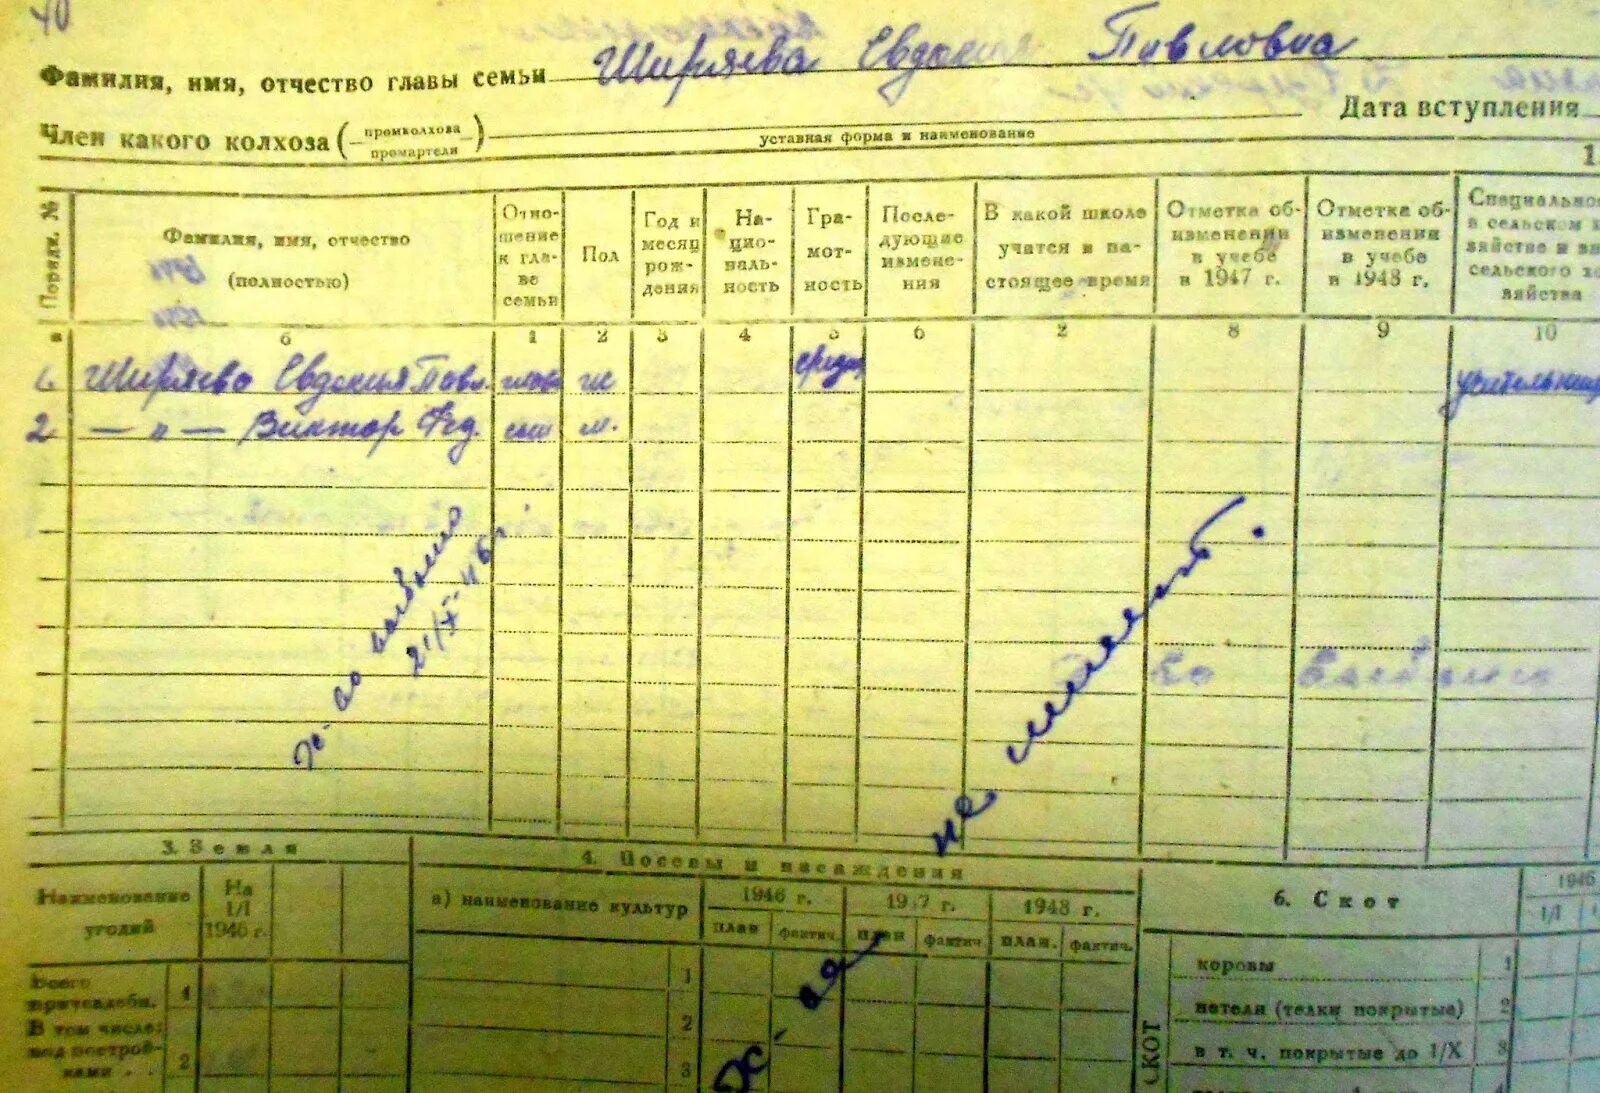 40
Фамилия, имя, отчество главы семьи Ширяева Евдокия Павловна
Дата вступления
Член какого колхоза (промколхоза промартели)
уставная форма и наименование
1.
Порядк. №
Фамилия, имя, отчество (полностью)
Отношение к главе семьи
Пол
Год и месяц рождения
Национальность
Грамотность
Последующие изменения
В какой школе учатся в настоящее время
Отметка об изменении в учебе в 1947 г.
Отметка об изменении в учебе в 1948 г.
Специально
в сельском х
зяйстве и вн
сельского хо
зяйства
а б 1 2 3 4 5 6 7 8 9 10
1. Ширяева Евдокия Павл. глава ж средн учительница
2 — „ — Виктор Фед. сын м.
х-во выбыло
21/X-46 г.
х-ва не имеет.
во выбыло
3. Земля
Наименование угодий
На 1/I 1946 г.
Всего приусадебн. 1
В том числе: под постройками . . 2
4. Посевы и насаждения
а) наименование культур
1946 г. 1947 г. 1948 г.
план фактич. план фактич. план. фактич.
1
2
3
6. Скот
1946
1/I
СКОТ
коровы 1
нетели (телки покрытые) 2
в т. ч. покрытые до 1/X 3
4